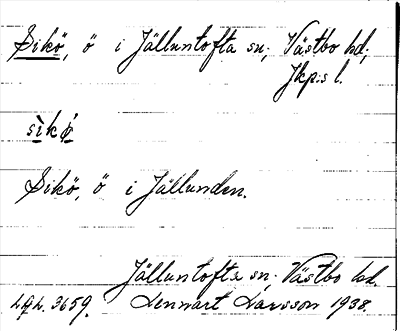 Sikö, ö i Jälluntofta sn; Västbo hd;
Jkp:s l.
sìkö̀
Sikö, ö i Jällunden.
Jälluntofta sn; Västbo hd.
3659. Lennart Larsson 1938.